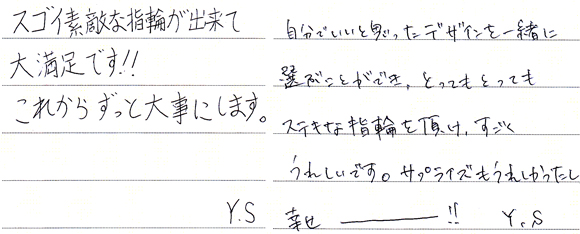 スゴイ素敵な指輪が出来て
大満足です!!
これからずっと大事にします。
Y.S
自分でいいと思ったデザインを一緒に
選ぶことができ、とってもとっても
ステキな指輪を頂け、すごく
うれしいです。サプライズもうれしかったし
幸せ ———!! Y.S